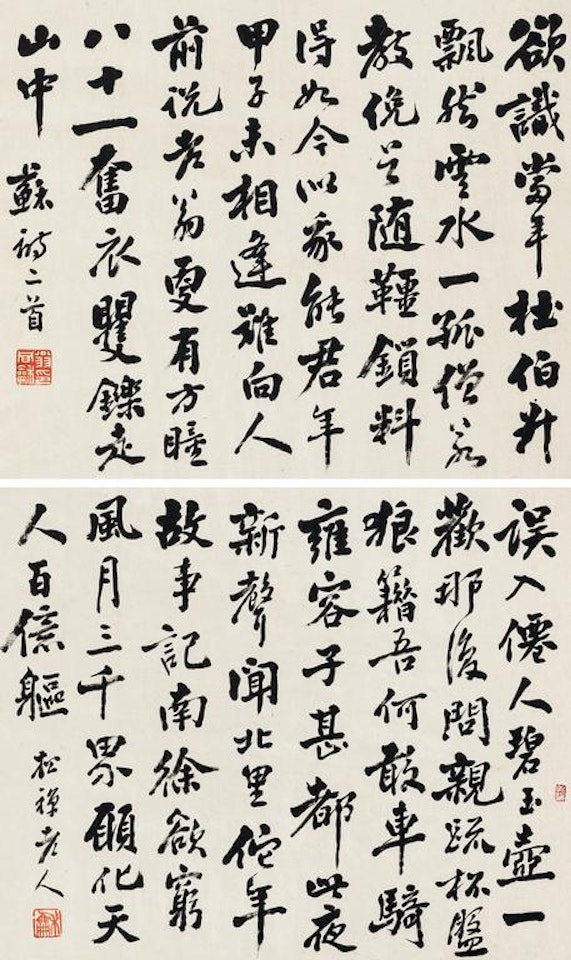 欲識當年杜伯升
飄然雲水一孤僧若
教俛首随韁鎖料
得如今似我能君年
甲子未相逢難向人
前説老翁更有方瞳
八十一奮衣矍鑠走
山中
蘇詩二首
誤入僊人碧玉壺一
歡那復問親疏杯盤
狼籍吾何敢車騎
雍容子甚都此夜
新聲聞北里佗年
故事記南徐欲窮
風月三千界願化天
人百億軀
松禪老人